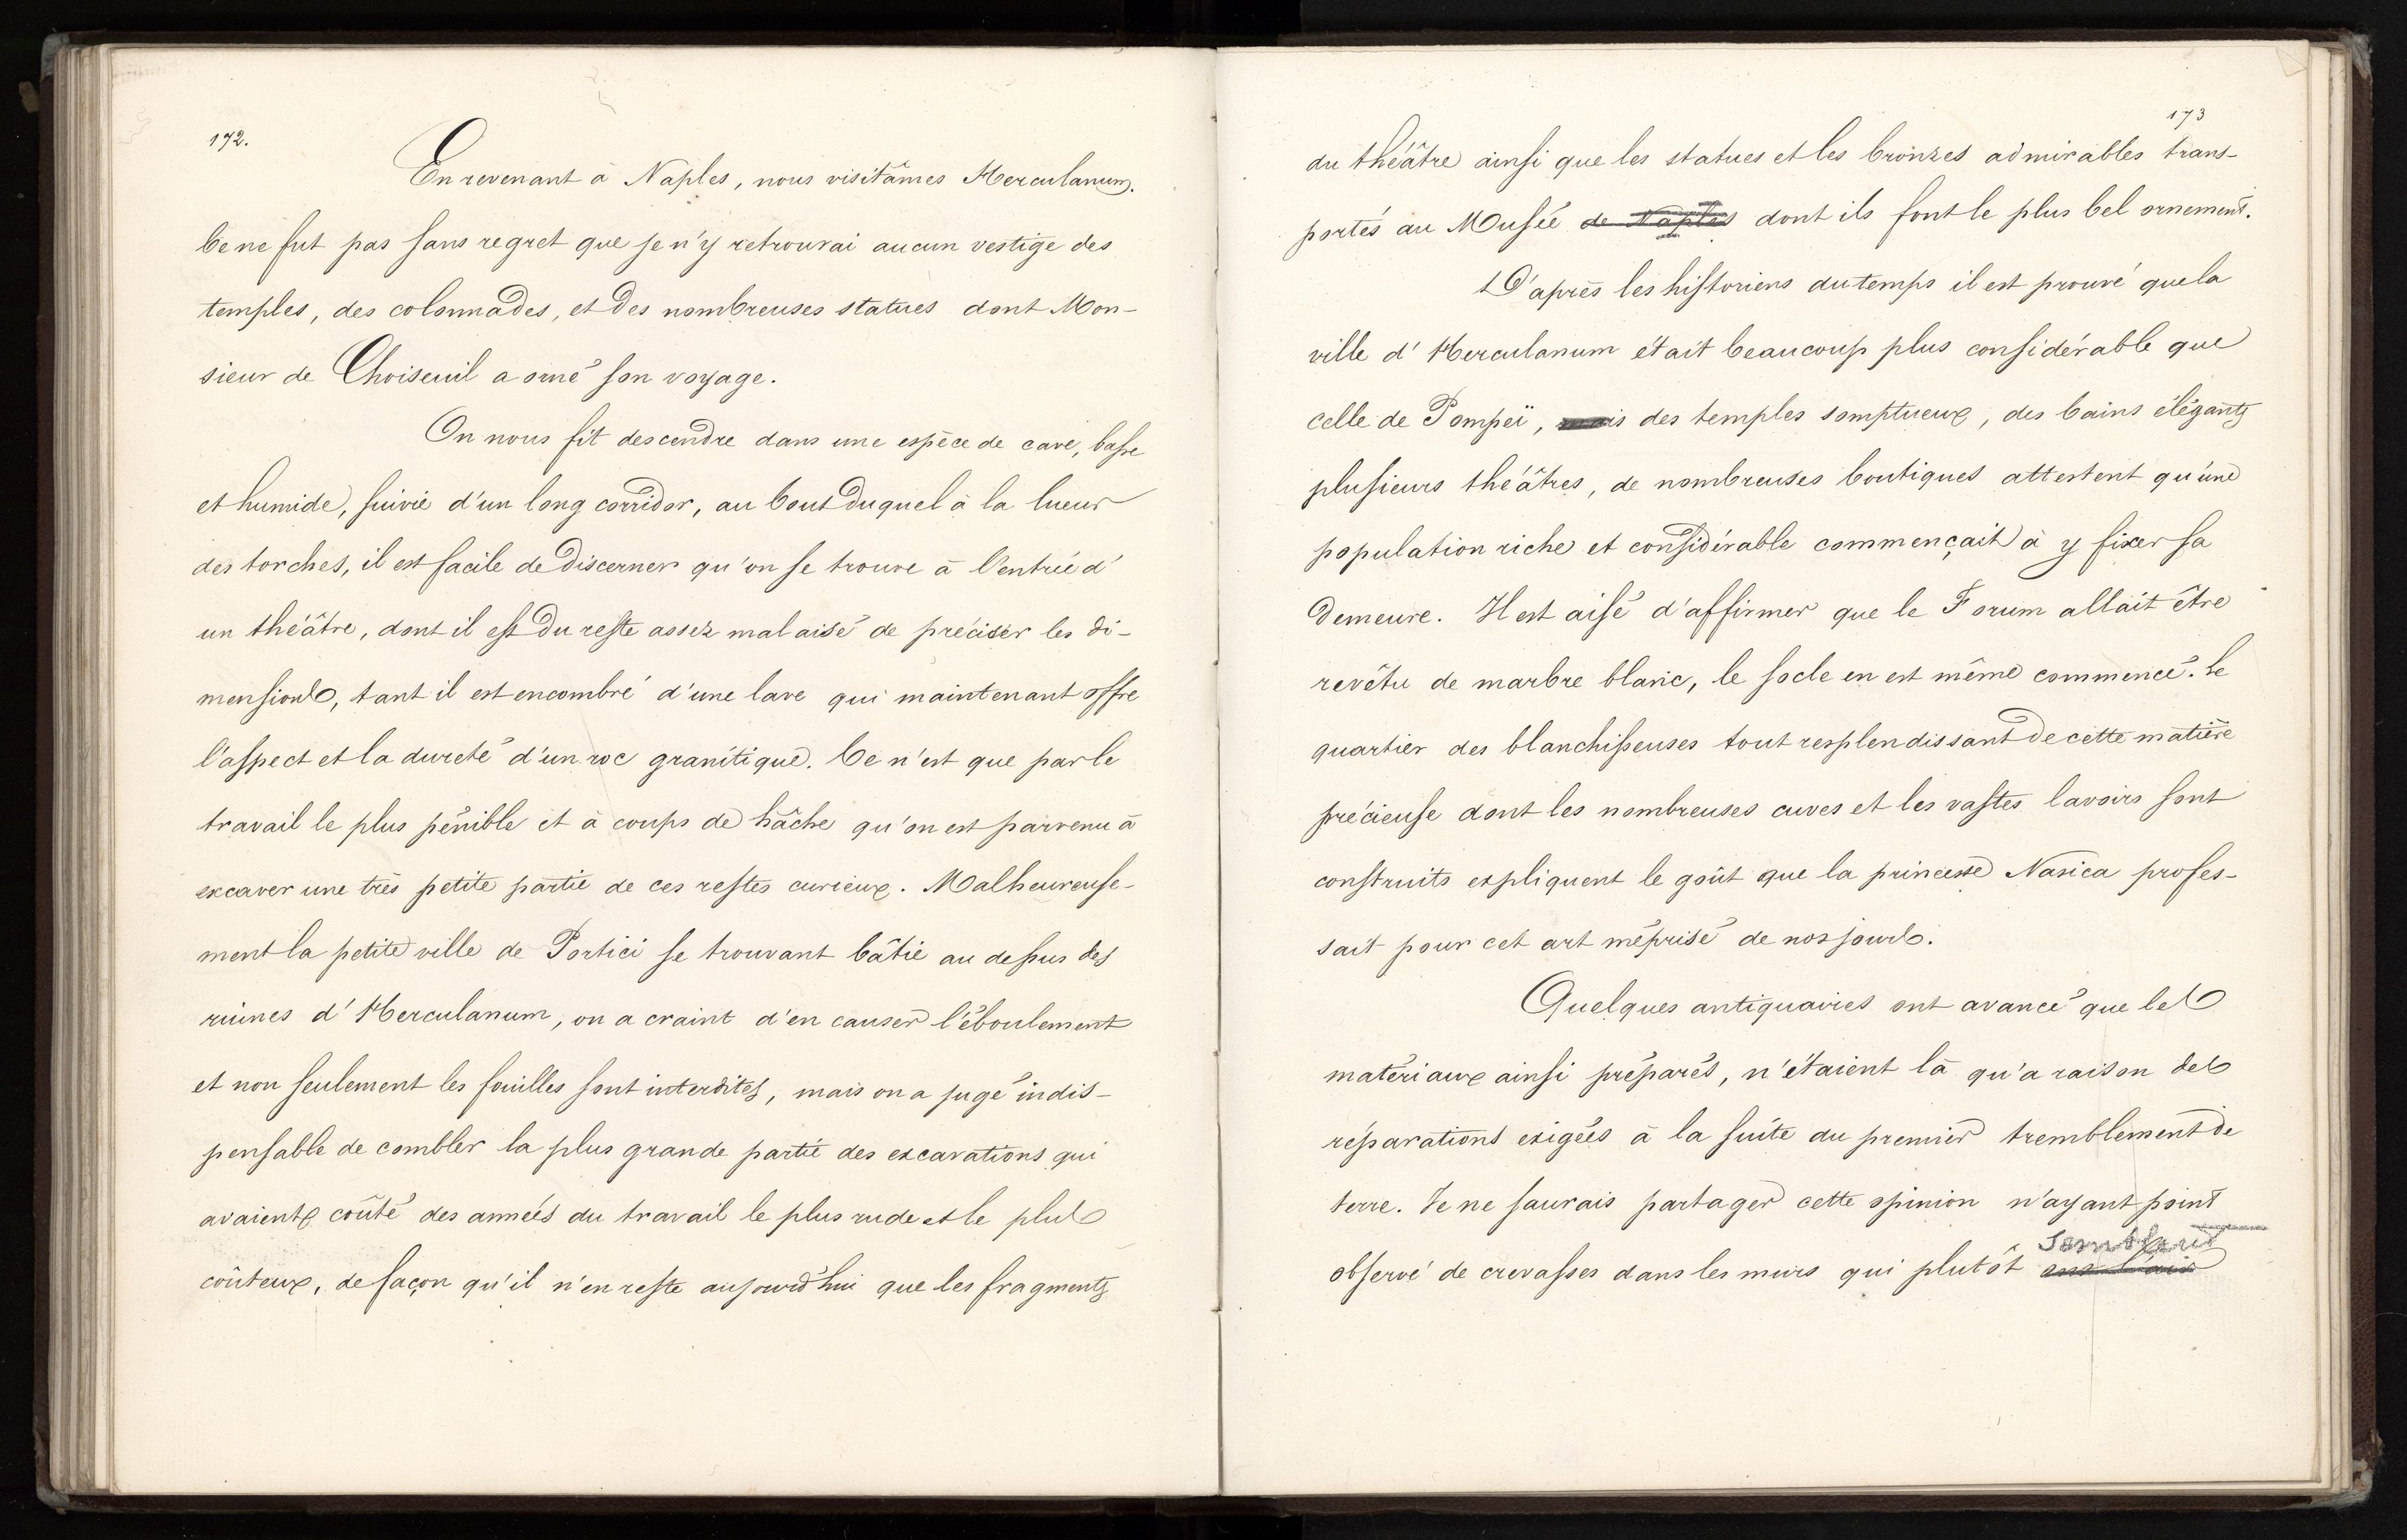 172.
En revenant à Naples, nous visitâmes Herculanum.
Ce ne fut pas sans regret que je n'y retrouvai aucun vestige des
temples, des colonnades, et des nombreuses statues dont Mon-
sieur de Choiseuil a orné son voyage.
On nous fit descendre dans une espèce de cave, basse
et humide, suivie d'un long corridor, au bout duquel à la lueur
des torches, il est facile de discerner qu'on se trouve à l'entrée d'
un théâtre, dont il est du reste assez mal aisé de préciser les di-
mensions, tant il est encombré d'une lave qui maintenant offre
l'aspect et la dureté d'un roc granitique. Ce n'est que par le
travail le plus pénible et à coups de hâche qu'on est parvenu à
excaver une très petite partie de ces restes curieux. Malheureuse-
ment la petite ville de Portici se trouvant bâtie au dessus des
ruines d'Herculanum, on a craint d'en causer l'éboulement
et non seulement les fouilles sont interdites, mais on a jugé indis-
pensable de combler la plus grande partie des excavations qui
avaient coûté des années du travail le plus rude et le plus
coûteux, de façon qu'il n'en reste aujourd'hui que les fragments
173
du théâtre ainsi que les statues et les bronzes admirables trans-
portés au Musée de Naples dont ils font le plus bel ornement.
D'après les historiens du temps il est prouvé que la
ville d'Herculanum était beaucoup plus considérable que
celle de Pompeï, mais des temples somptueux, des bains élégants
plusieurs théâtres, de nombreuses boutiques attestent qu'une
population riche et considérable commençait à y fixer sa
demeure. Il est aisé d'affirmer que le Forum allait être
revêtu de marbre blanc, le socle en est même commencé. Le
quartier des blanchisseuses tout resplendissant de cette matière
précieuse dont les nombreuses cuves et les vastes lavoirs sont
construits expliquent le goût que la princesse Nasica profes-
sait pour cet art méprisé de nos jours.
Quelques antiquaires ont avancé que les
matériaux ainsi préparés, n'étaient là qu'a raison des
réparations exigées à la suite du premier tremblement de
terre. Je ne saurais partager cette opinion n'ayant point
semblent
observé de crevasses dans les murs qui plutôt ont l'air